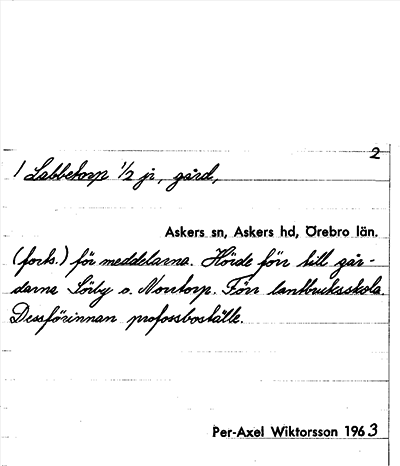 2
/ Labbetorp 1/2 jr, gård,
Askers sn, Askers hd, Örebro län.
(forts.) för meddelarna. Hörde förr till går-
darna Sörby o. Norrtorp. Förr lantbruksskola.
Dessförinnan profossboställe.
Per-Axel Wiktorsson 1963